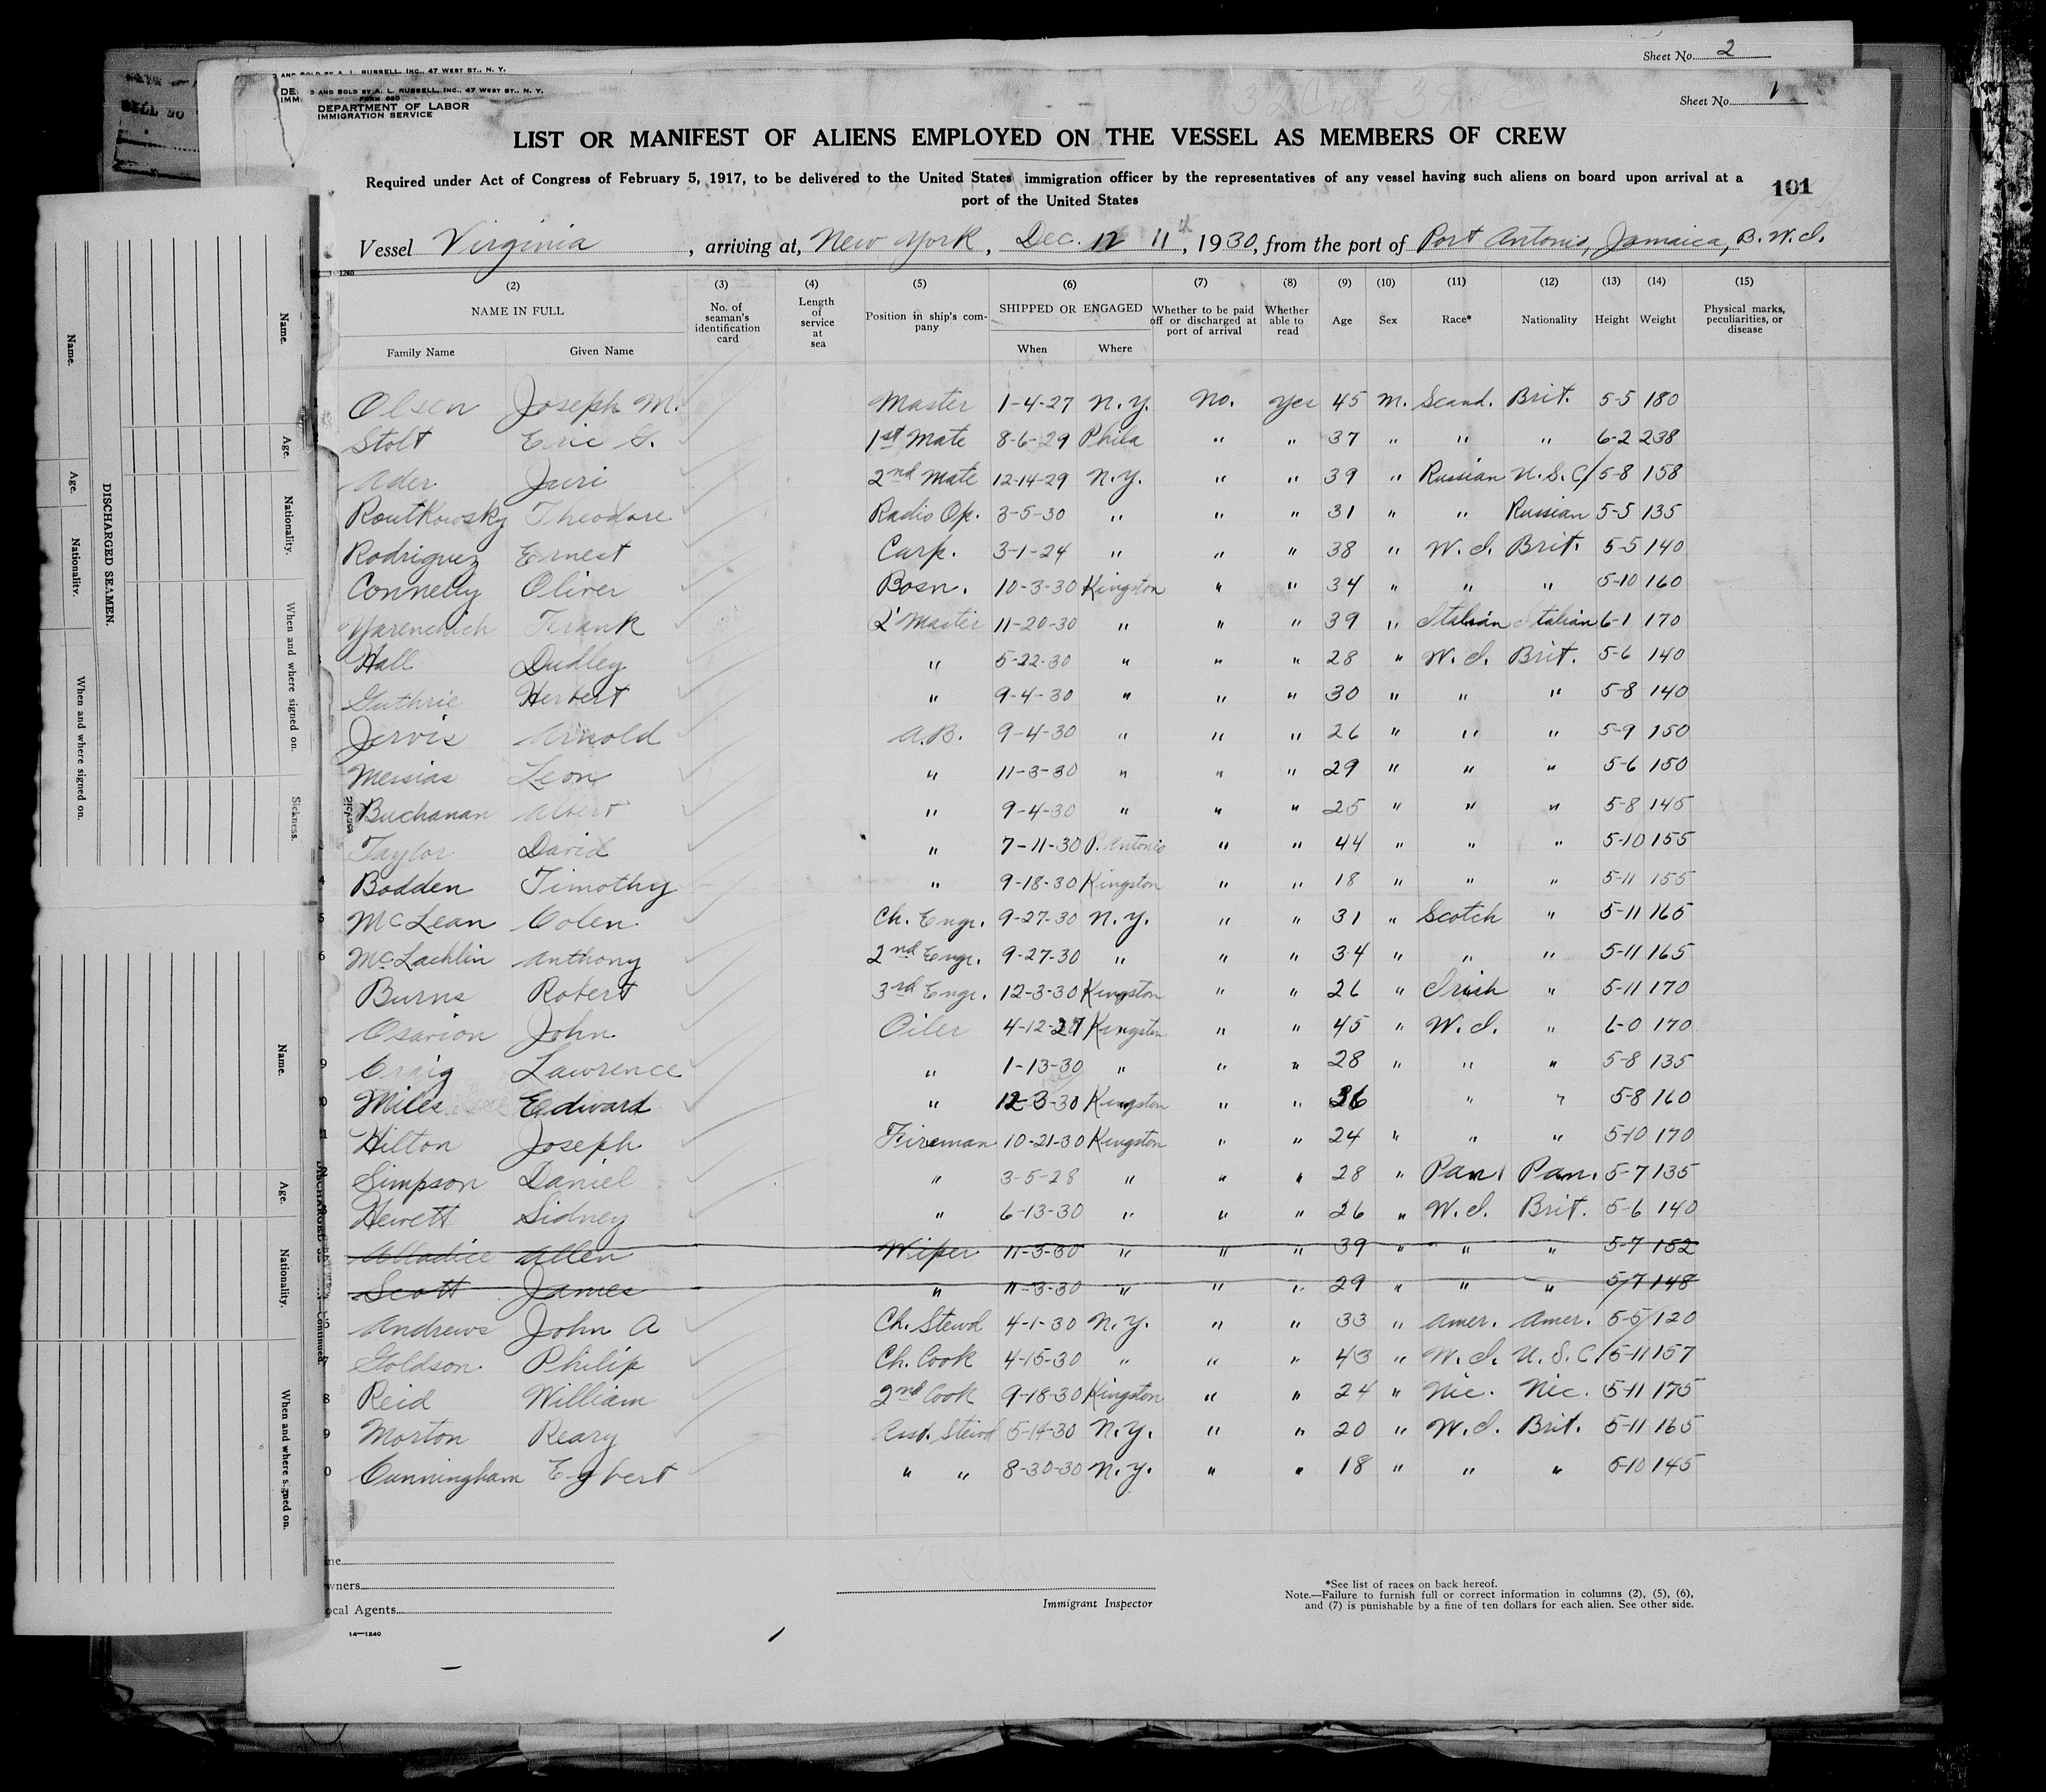 Sheet No. 2
AND SOLD BY A. L. RUSSELL, INC., 47 WEST ST., N. Y.
AND SOLD BY A. L. RUSSELL, INC., 47 WEST ST., N. Y.
FORM 680
DEPARTMENT OF LABOR
IMMIGRATION SERVICE
Sheet No. 1
LIST OR MANIFEST OF ALIENS EMPLOYED ON THE VESSEL AS MEMBERS OF CREW
Required under Act of Congress of February 5, 1917, to be delivered to the United States immigration officer by the representatives of any vessel having such aliens on board upon arrival at a
port of the United States
101
Vessel Virginia, arriving at, New York, Dec. 11th, 1930, from the port of Port Antonio, Jamaica, B.W.I.
(2) (3) (4) (5) (6) (7) (8) (9) (10) (11) (12) (13) (14) (15)
NAME IN FULL No. of seaman's identification card Length of service at sea Position in ship's company SHIPPED OR ENGAGED Whether to be paid off or discharged at port of arrival Whether able to read Age Sex Race* Nationality Height Weight Physical marks, peculiarities, or disease
Family Name Given Name When Where
Olsen Joseph M. Master 1-4-27 N.Y. No. Yes 45 M. Scand. Brit. 5-5 180
Stolt Eric G. 1st Mate 8-6-29 Phila " " 37 " " " 6-2 238
Ader Juri 2nd Mate 12-14-29 N.Y. " " 39 " Russian U.S.C. 5-8 158
Routkowsky Theodore Radio Op. 3-5-30 " " " 31 " " Russian 5-5 135
Rodriguez Ernest Carp. 3-1-24 " " " 38 " W.I. Brit. 5-5 140
Connelly Oliver Bosn. 10-3-30 Kingston " " 34 " " " 5-10 160
Yarenchich Frank Q' Master 11-20-30 " " " 39 " Italian Italian 6-1 170
Hall Dudley " 5-22-30 " " " 28 " W.I. Brit. 5-6 140
Guthrie Herbert " 9-4-30 " " " 30 " " " 5-8 140
Jervis Arnold A.B. 9-4-30 " " " 26 " " " 5-9 150
Messias Leon " 11-3-30 " " " 29 " " " 5-6 150
Buchanan Albert " 9-4-30 " " " 25 " " " 5-8 145
Taylor David " 7-11-30 P. Antonio " " 44 " " " 5-10 155
Bodden Timothy " 9-18-30 Kingston " " 18 " " " 5-11 155
McLean Colen Ch. Engr. 9-27-30 N.Y. " " 31 " Scotch " 5-11 165
McLachlin Anthony 2nd Engr. 9-27-30 " " " 34 " " " 5-11 165
Burns Robert 3rd Engr. 12-3-30 Kingston " " 26 " Irish " 5-11 170
Osarion John Oiler 4-12-27 Kingston " " 45 " W.I. " 6-0 170
Craig Lawrence " 1-13-30 " " " 28 " " " 5-8 135
Miles Edward " 12-3-30 Kingston " " 36 " " 5-8 160
Hilton Joseph Fireman 10-21-30 Kingston " " 24 " " " 5-10 170
Simpson Daniel " 3-5-28 " " " 28 " Pan. Pan. 5-7 135
Hewett Sidney " 6-13-30 " " " 26 " W.I. Brit. 5-6 140
Alladice Allen Wiper 11-3-30 " " " 39 " " " 5-7 152
Scott James " 11-3-30 " " " 29 " " " 5-7 148
Andrews John A Ch. Stewd 4-1-30 N.Y. " " 33 " Amer. Amer. 5-5 120
Goldson Philip Ch. Cook 4-15-30 " " " 43 " W.I. U.S.C. 5-11 157
Reid William 2nd Cook 9-18-30 Kingston " " 24 " Nic. Nic. 5-11 175
Morton Reary Asst. Stewd 5-14-30 N.Y. " " 20 " W.I. Brit. 5-11 165
Cunningham Egbert " " 8-30-30 N.Y. " " 18 " " " 5-10 145
Immigrant Inspector
*See list of races on back hereof.
Note.—Failure to furnish full or correct information in columns (2), (5), (6),
and (7) is punishable by a fine of ten dollars for each alien. See other side.
ocal Agents
14—1240
DISCHARGED SEAMEN.
Name. Age. Nationality. When and where signed on.
Name. Age. Nationality. When and where signed on. Sickness.
Name. Age. Nationality. When and where signed on.